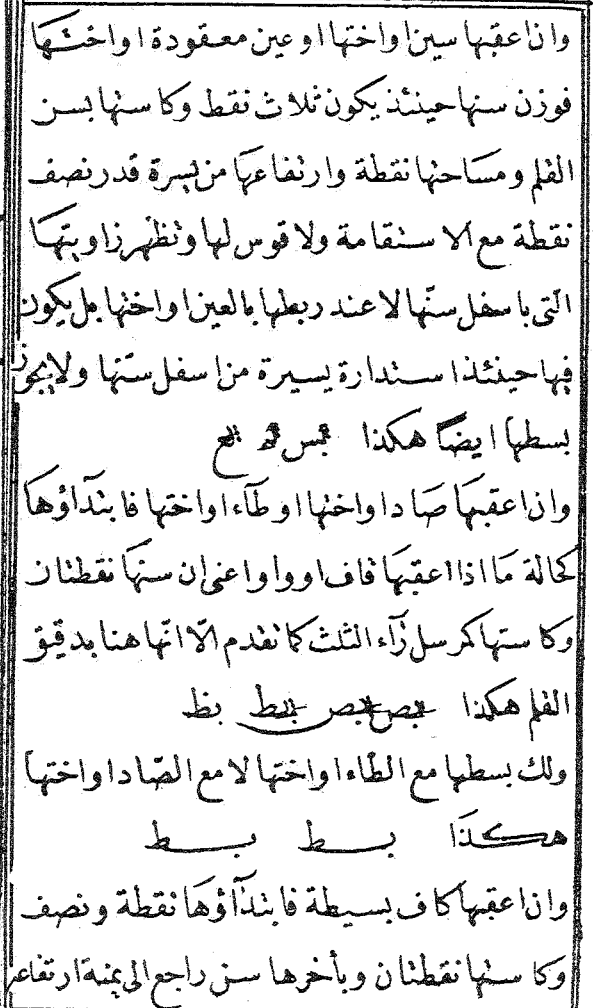 وان اعقبها سين او اختها او عين معقودة او اختها
فوزن سنها حينئذ يكون ثلاث نقط وكاستها بسن
القلم ومساحتها نقطة وارتفاعها من يسرة قدر نصف
نقطة مع الاستقامة ولا قوس لها وتظهر زاويتها
التى باسفل سنّها لا عند ربطها بالعين او اختها بل يكون
فيها حينئذ استدارة يسيرة من اسفل سنّها ولا يجوز
بسطها ايضاً هكذا بس بع
وان اعقبها صادا واختها او طآء او اختها فابتدآؤها
كحالة ما اذا اعقبها قاف او واو اعنى ان سنها نقطتان
وكاستها كمرسل رآء الثلث كما تقدم الّا انّها هنا بدقيق
القلم هكذا بص بص بط بظ
ولك بسطها مع الطاء او اختها لا مع الصّاد او اختها
هكذا بسط بسط
وان اعقبها كاف بسيطة فابتدآؤها نقطة ونصف
وكاستها نقطتان وبأخرها سن راجع الى يمنة ارتفاعه